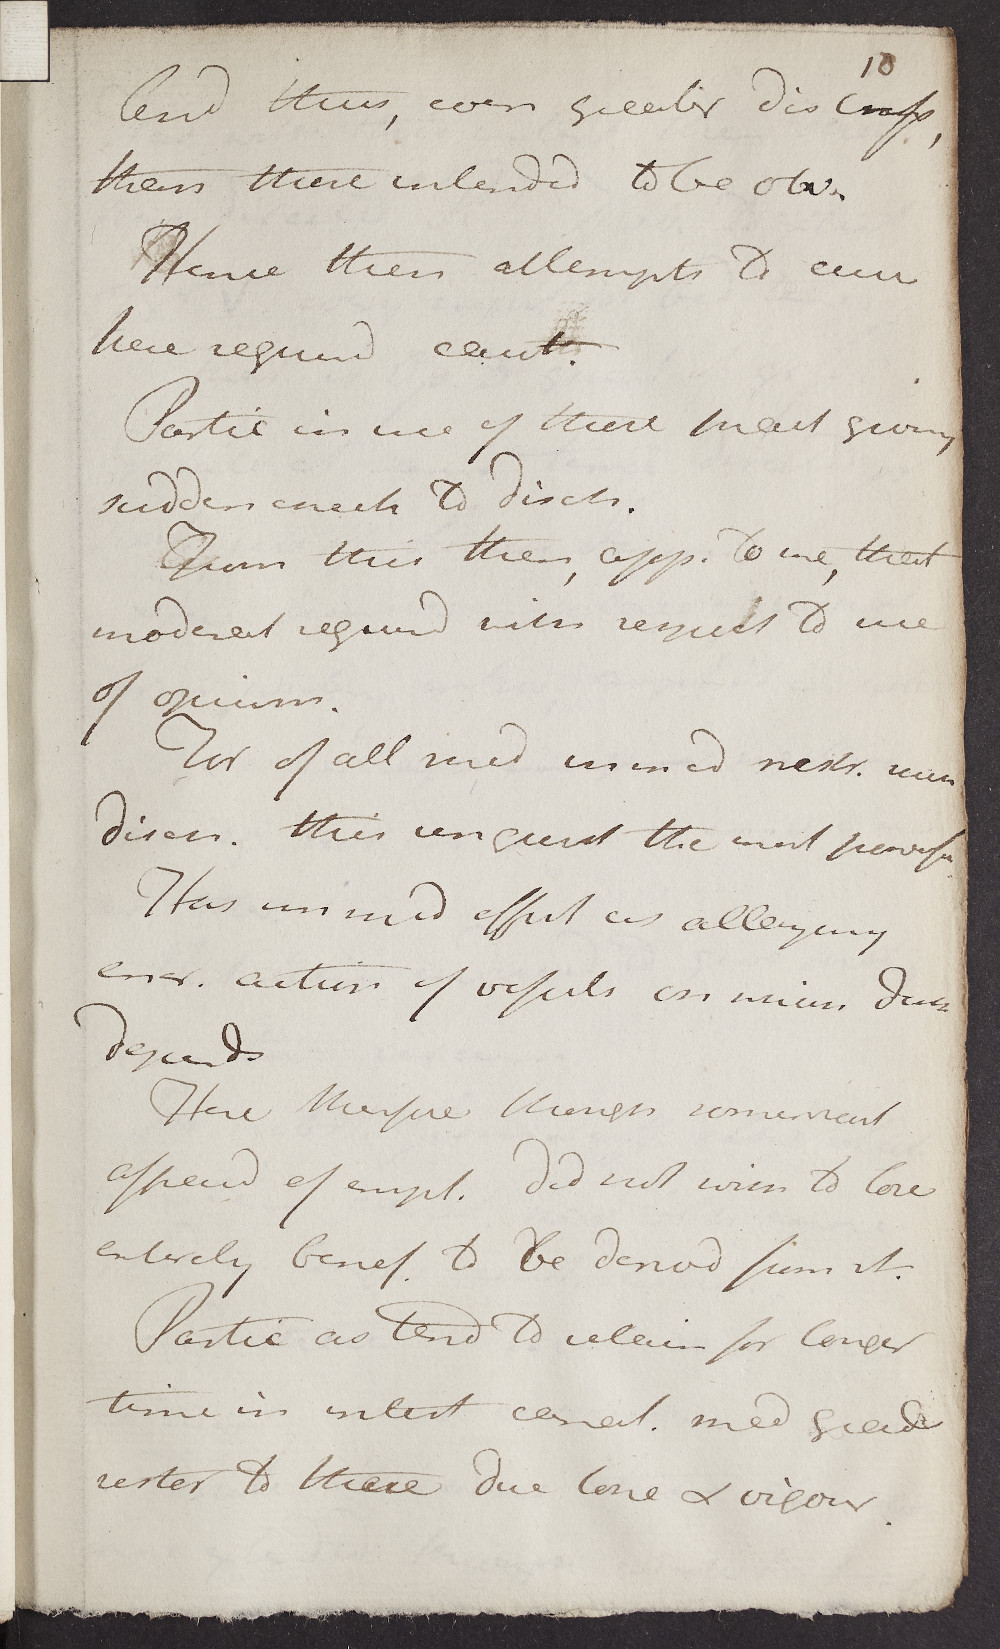 10
lend thus, even greater dis
them those intended to be obv.
Hence then attempts to cure
here requird caut.
Partic in use of those that giving
sudden check to disch.
From this then, app. to me, that
moderat requird with respect to use
of opium.
For of all med
disch. this unquest the most powerfu
Has immed effect as allaying
encr. action of vessels on which disea
depends
Here therfore though somewhat
affraid of empl. did not wish to lose
entirely benef. to be derivd from it.
Partic as tend to retain for longer
time in intest canal. med
restor to these due tone & vigour.